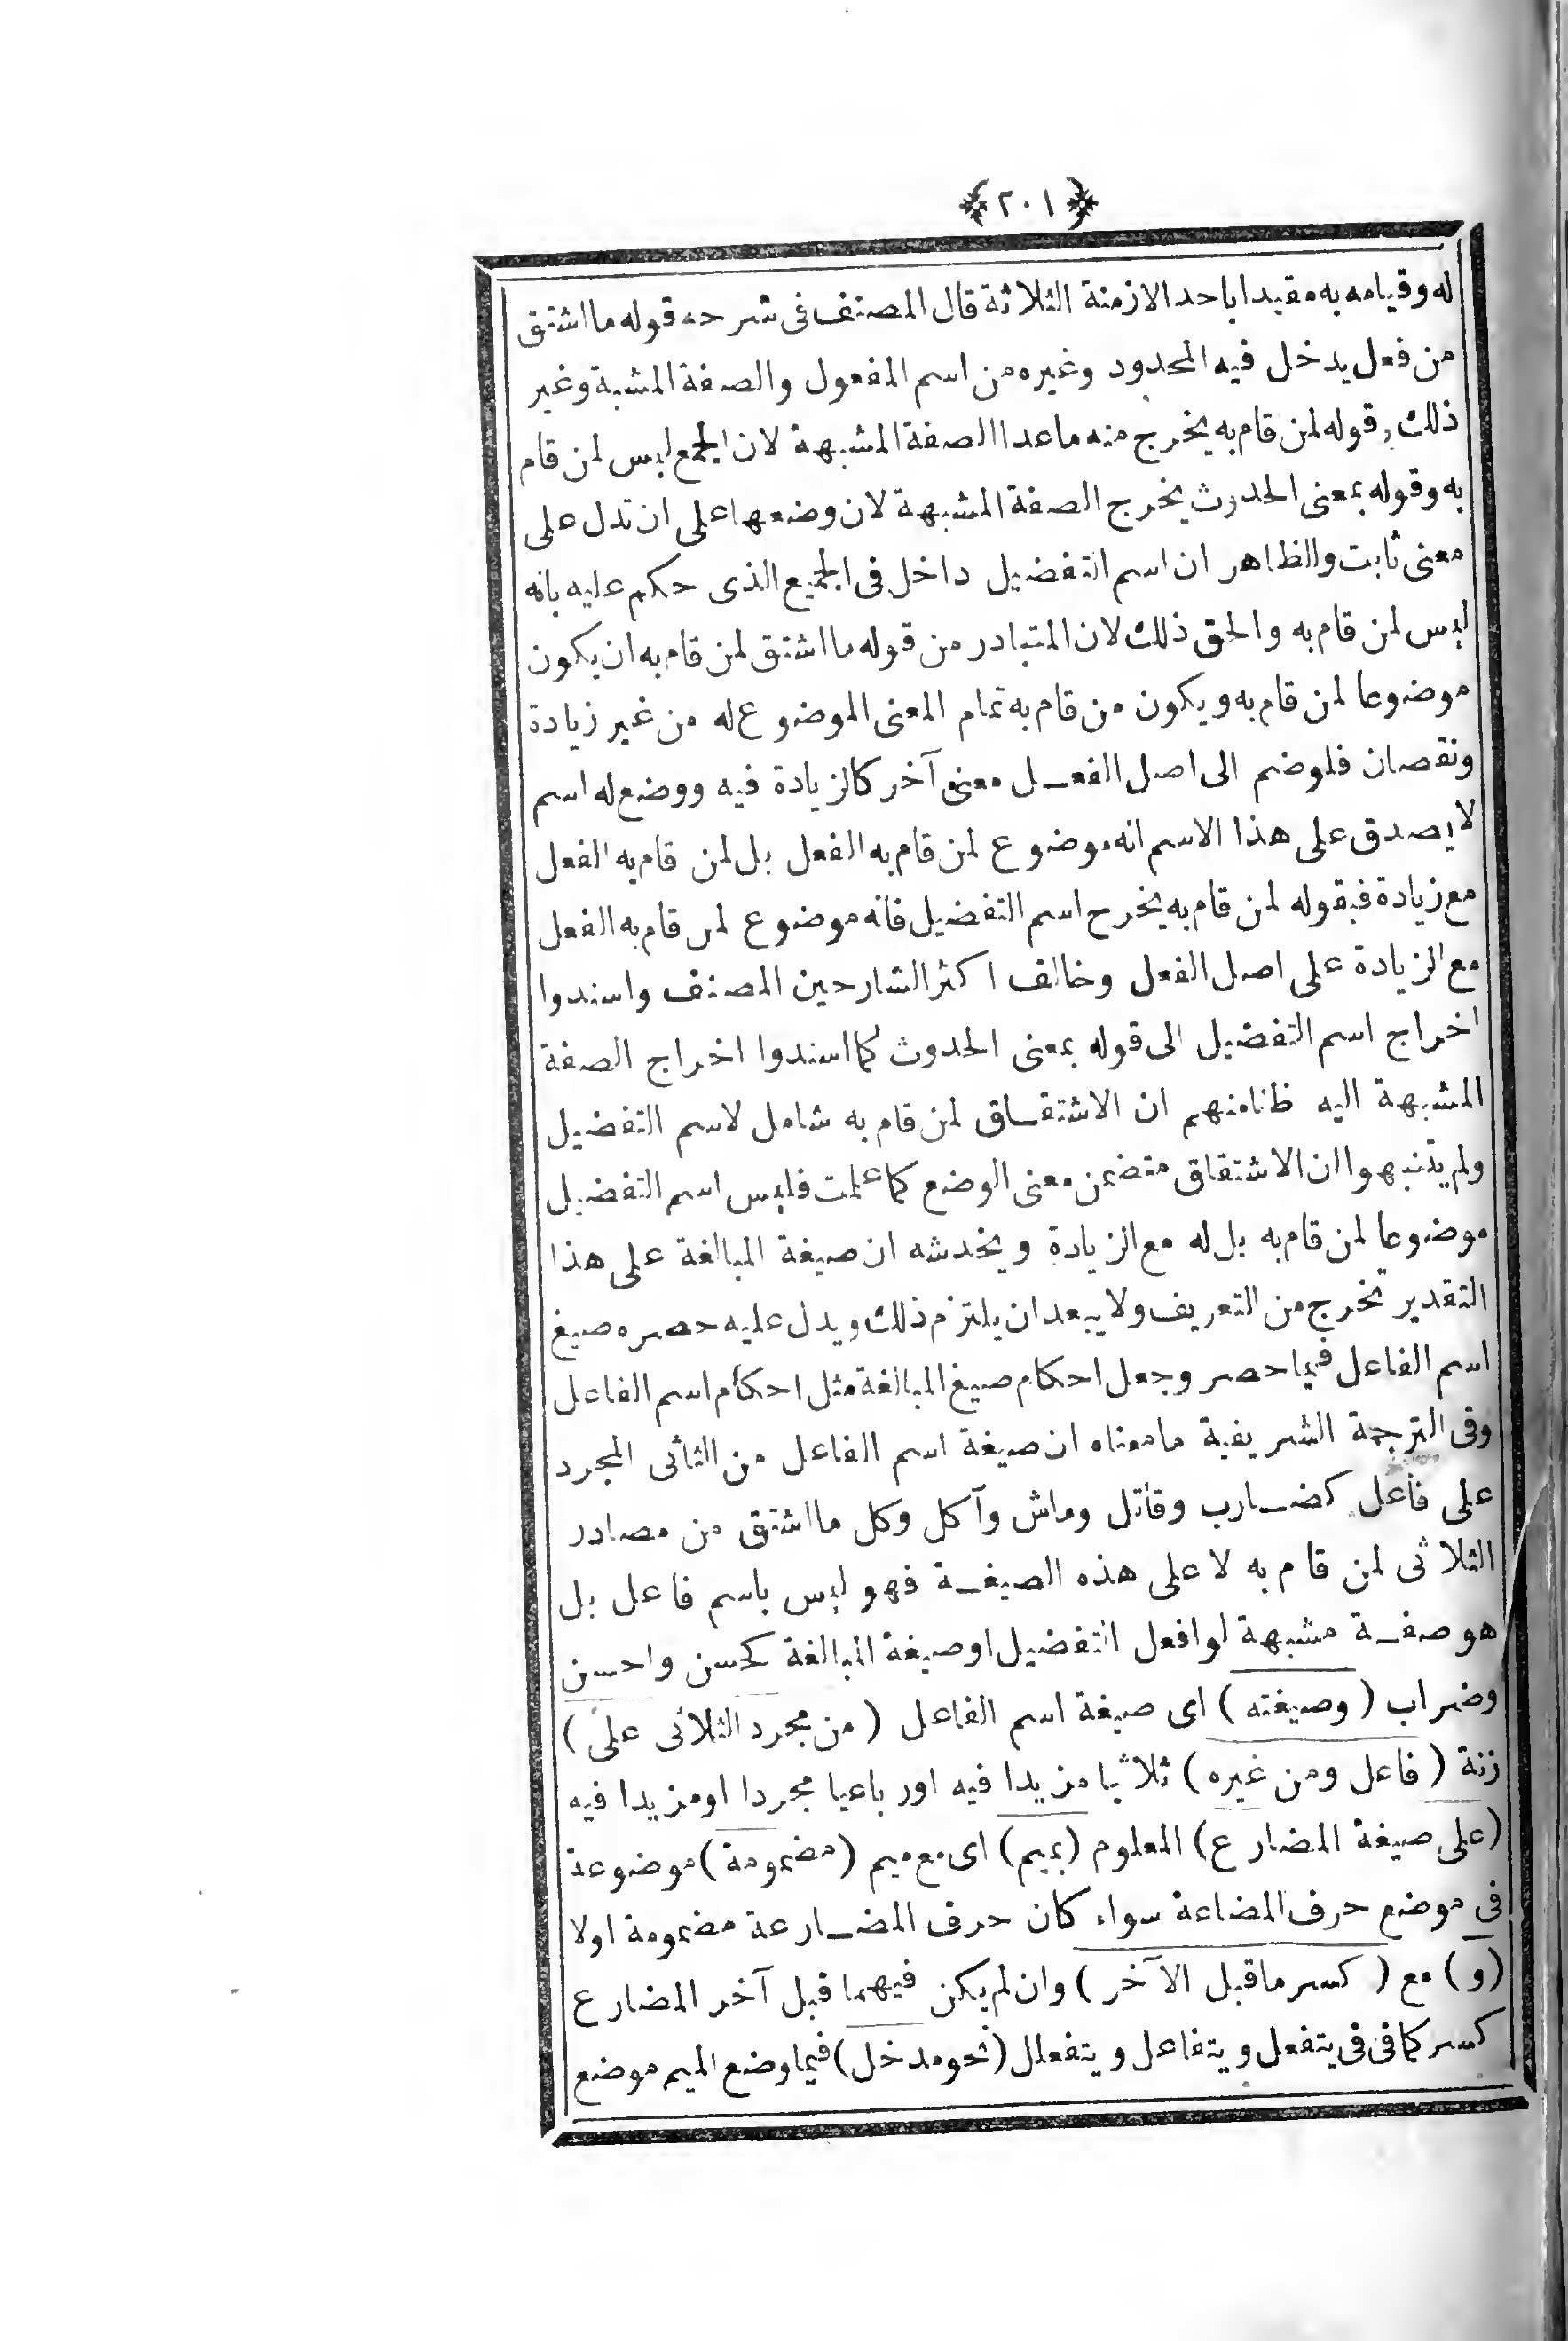 ﴿٢٠١﴾
له وقيامه به مقيدا باحد الازمنة الثلاثة قال المصنف فى شرحه قوله ما اشتق
من فعل يدخل فيه المحدود وغيره من اسم المفعول والصفة المشبة وغير
ذلك وقوله لمن قام به يخرج منه ماعدا الصفة المشبهة لان الجمع ليس لمن قام
به وقوله بمعنى الحدوث يخرج الصفة المشبهة لان وضعها على ان تدل على
معنى ثابت والظاهر ان اسم التفضيل داخل فى الجميع الذى حكم عليه بانه
ليس لمن قام به والحق ذلك لان المتبادر من قوله ما اشتق لمن قام به ان يكون
موضوعا لمن قام به ويكون من قام به تمام المعنى الموضوع له من غير زيادة
ونقصان فلوضم الى اصل الفعل معنى آخر كالزيادة فيه ووضع له اسم
لايصدق على هذا الاسم انه موضوع لمن قام به الفعل بل لمن قام به الفعل
مع زيادة فبقوله لمن قام به يخرج اسم التفضيل فانه موضوع لمن قام به الفعل
مع الزيادة على اصل الفعل وخالف اكثر الشارحين المصنف واسندوا
اخراج اسم التفضيل الى قوله بمعنى الحدوث كما اسندوا اخراج الصفة
المشبهة اليه ظنا منهم ان الاشتقاق لمن قام به شامل لاسم التفضيل
ولم يتنبهوا ان الاشتقاق متضمن معنى الوضع كما علمت فليس اسم التفضيل
موضوعا لمن قام به بل له مع الزيادة ويخدشه ان صيغة المبالغة على هذا
التقدير تخرج من التعريف ولا يبعد ان يلتزم ذلك ويدل عليه حصره صيغ
اسم الفاعل فيما حصر وجعل احكام صيغ المبالغة مثل احكام اسم الفاعل
وفى الترجمة الشريفية مامعناه ان صيغة اسم الفاعل من الثلثى المجرد
على فاعل كضارب وقاتل وماش وآكل وكل ما اشتق من مصادر
الثلاثى لمن قام به لا على هذه الصيغة فهو ليس باسم فاعل بل
هو صفة مشبهة او افعل التفضيل او صيغة المبالغة كحسن واحسن
وضراب ( وصيغته ) اى صيغة اسم الفاعل ( من مجرد الثلاثى على )
زنة ( فاعل ومن غيره ) ثلاثيا مزيدا فيه اورباعيا مجردا اومزيدا فيه
(على صيغة المضارع) المعلوم (بميم) اى مع ميم (مضمومة) موضوعة
فى موضع حرف المضاعة سواء كان حرف المضارعة مضمومة اولا
(و) مع ( كسر ماقبل الآخر ) وان لم يكن فيما قبل آخر المضارع
كسر كما فى فى يتفعل ويتفاعل ويتفعلل (نحو مدخل) فيما وضع الميم موضع